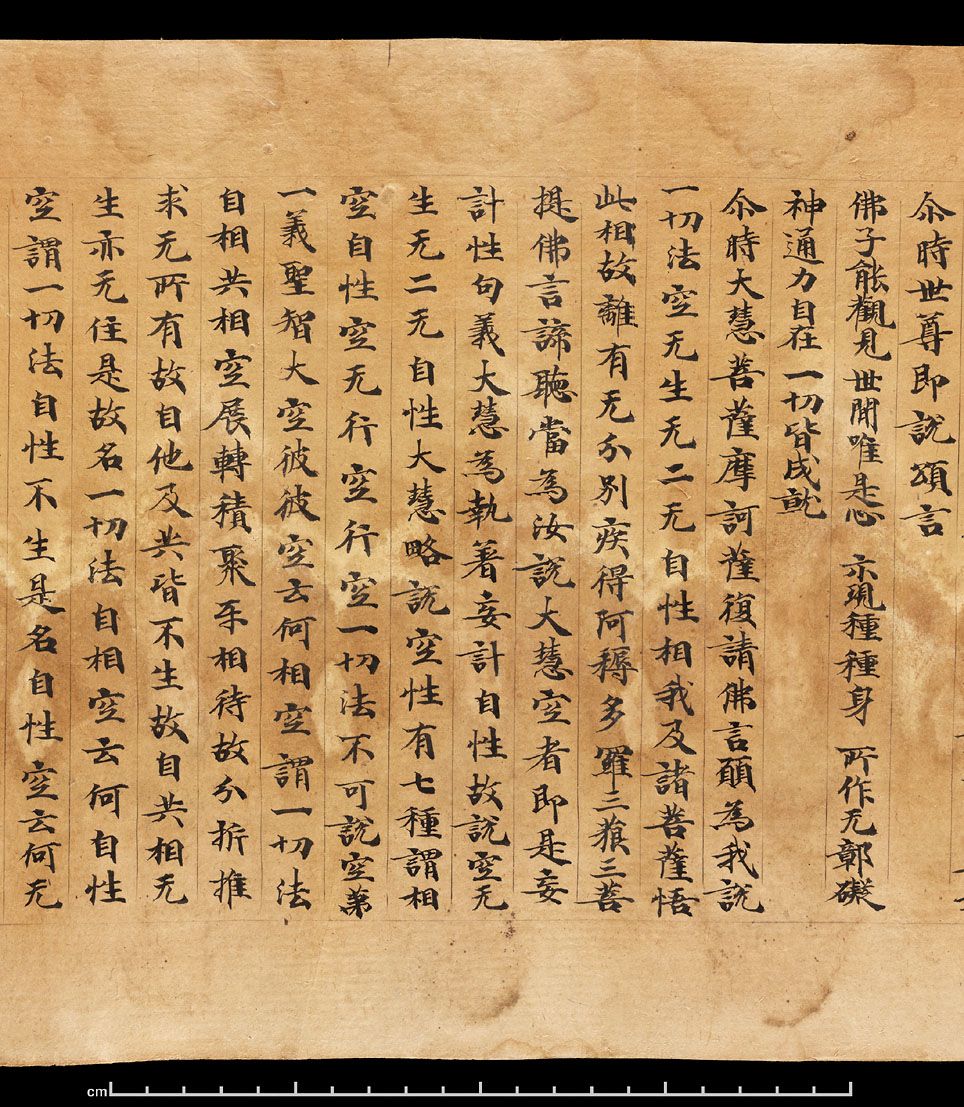 尒時世尊即說頌言
佛子能觀見 世閒唯是心 示現種種身 所作无鄣礙
神通力自在 一切皆成就
尒時大慧菩薩摩訶薩復請佛言願為我說
一切法空无生无二无自性相我及諸菩薩悟
此相故離有无分別疾得阿耨多羅三藐三菩
提佛言諦聽當為汝說大慧空者即是妄
計性句義大慧為執著妄計自性故說空无
生无二无自性大慧略說空性有七種謂相
空自性空无行空行空一切法不可說空第
一義聖智大空彼彼空云何相空謂一切法
自相共相空展轉積聚㸦相待故分折推
求无所有故自他及共皆不生故自共相无
生亦无住是故名一切法自相空云何自性
空謂一切法自性不生是名自性空云何无